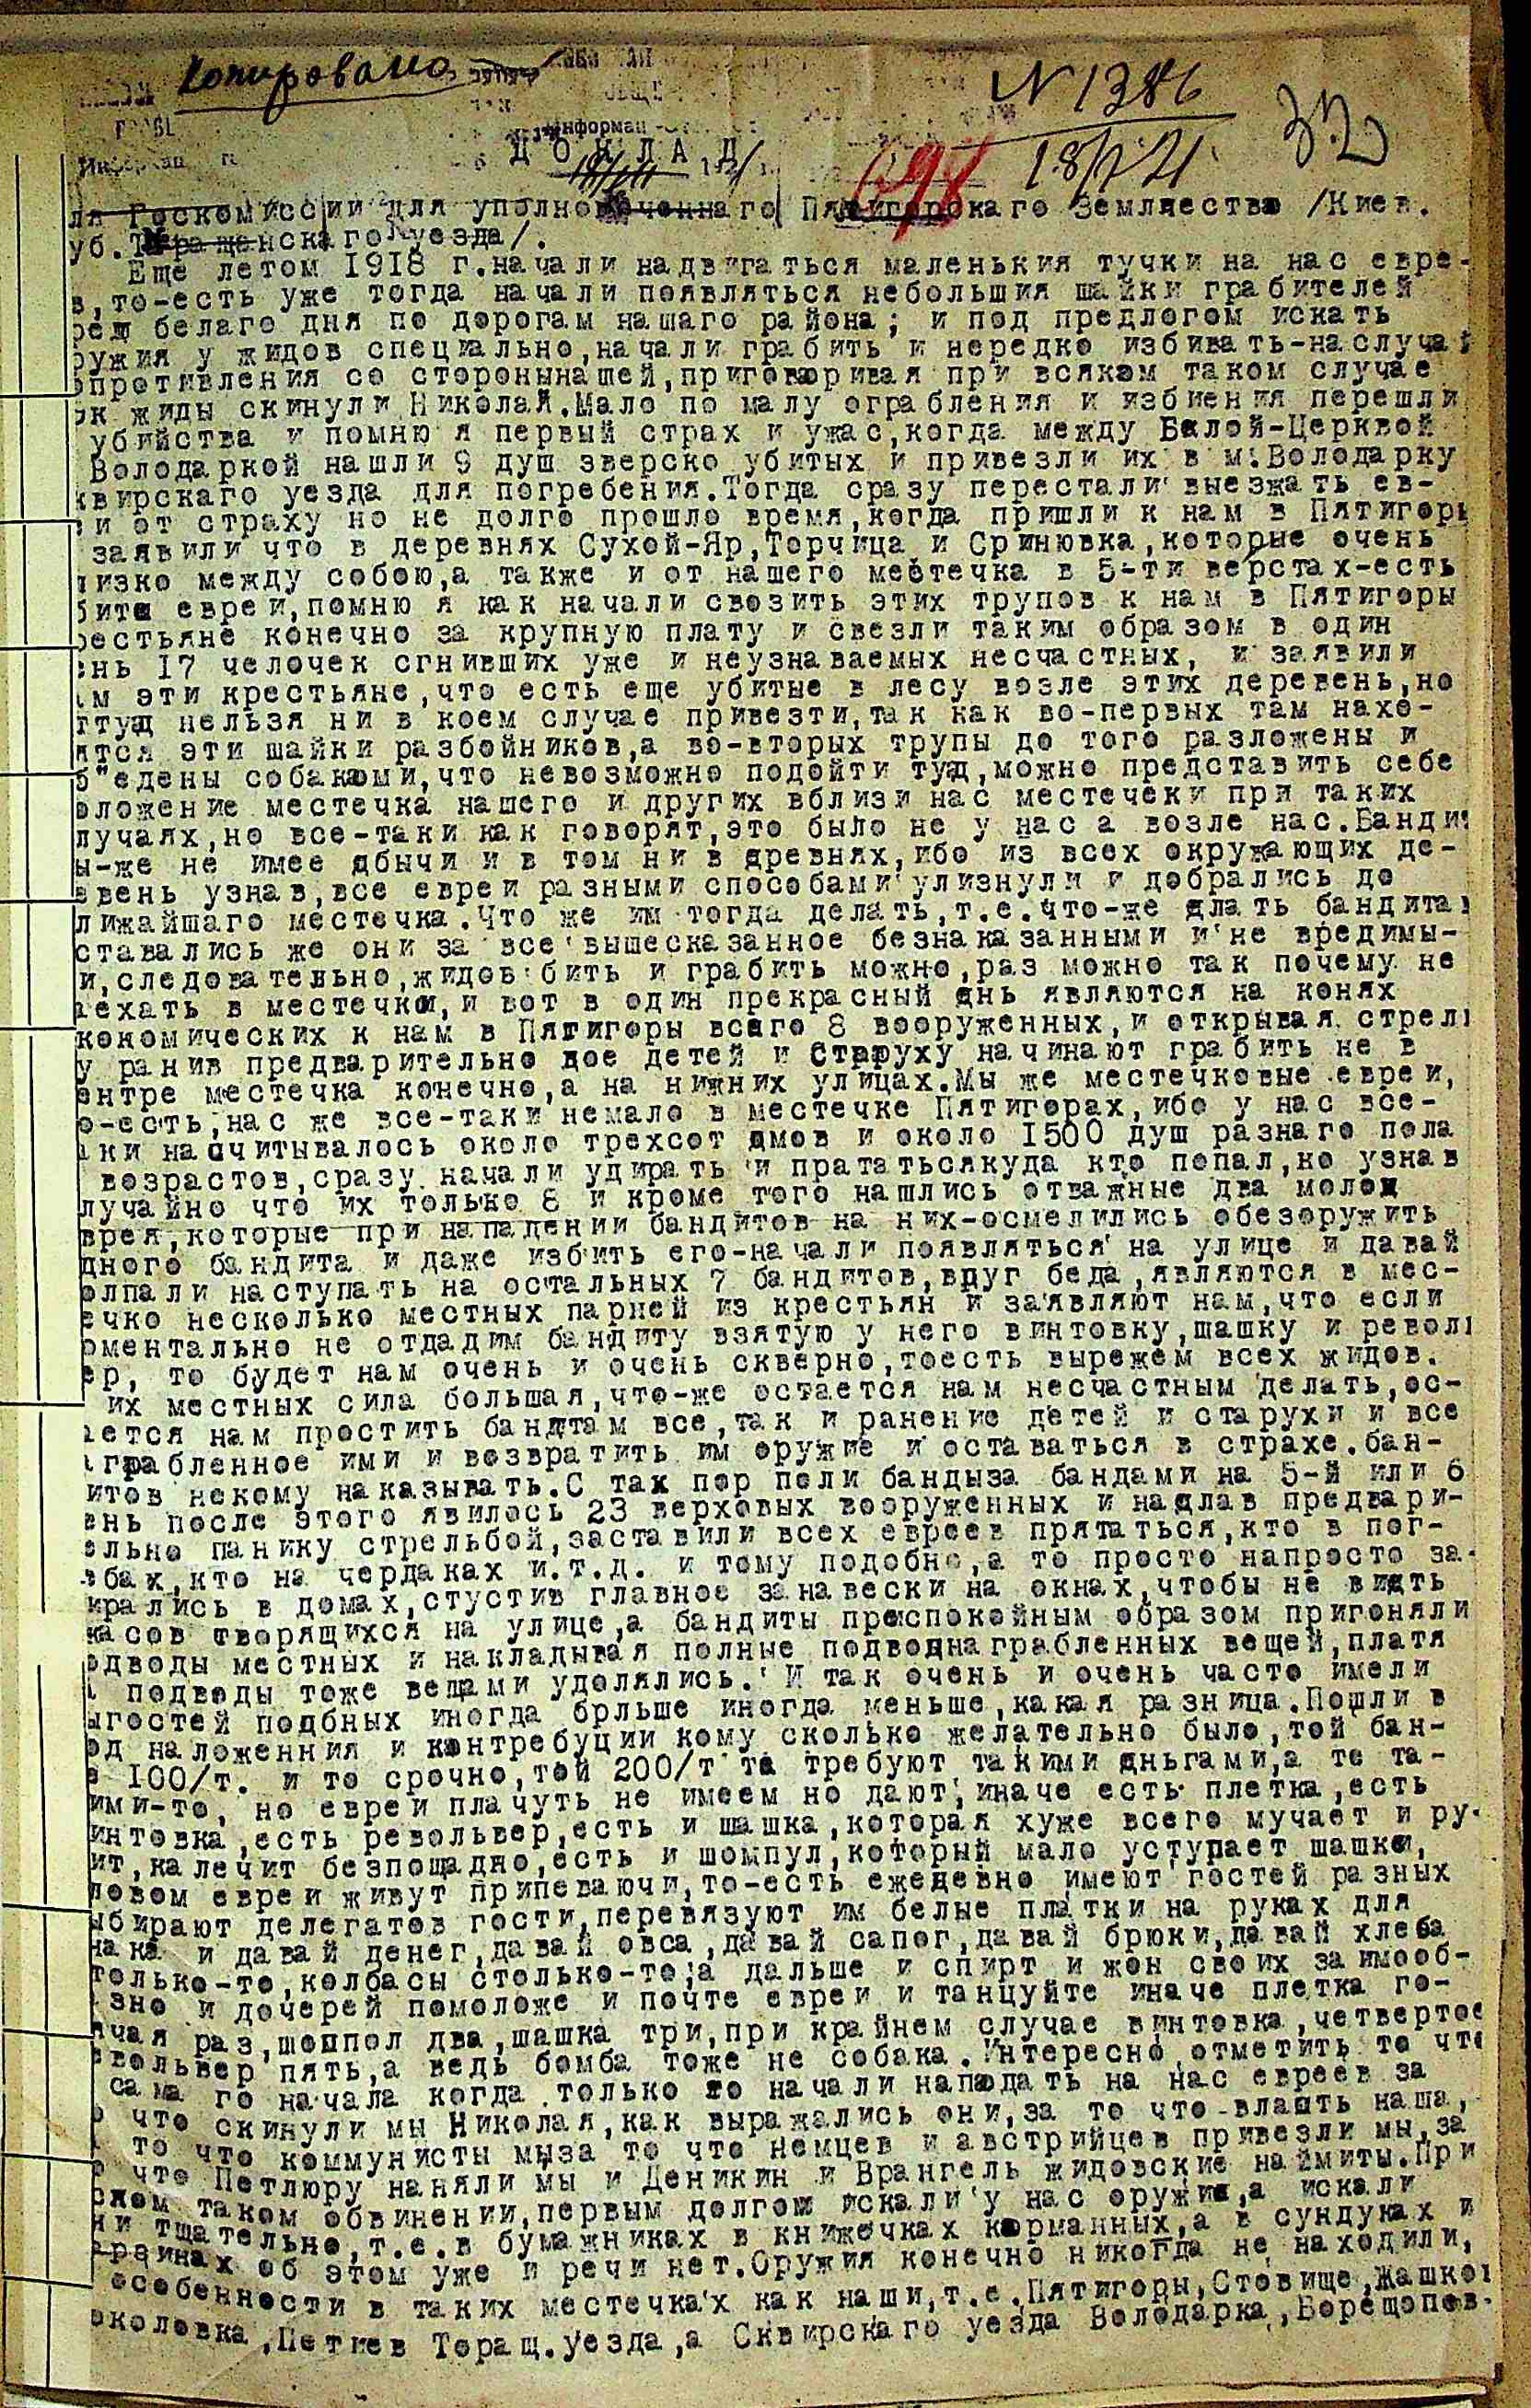 Копировано
N 1386
32
18/V 21
Информац
ДОКЛАД
698
ля Госкомиссии для уполномоченнаго Пятигорскаго Землячества /Киев.
уб. Таращанскаго уезда/.
Еще летом 1918 г.начали надвигаться маленькия тучки на нас евре-
в,то-есть уже тогда начали появляться небольшия шайки грабителей
ред белаго дня по дорогам нашаго района; и под предлогом искать
ружия у жидов специально,начали грабить и нередко избивать-наслучай
опротивления со сторонынашей,приговоривая при всяком таком случае
ак жиды скинули Николай.Мало по малу ограбления и избиения перешли
убийства и помню я первый страх и ужас,когда между Белой-Церквой
Володаркой нашли 9 душ зверско убитых и привезли их в м.Володарку
квирскаго уезда для погребения.Тогда сразу перестали выезжать ев-
еи от страху но не долго прошло время,когда пришли к нам в Пятигоры
заявили что в деревнях Сухой-Яр,Торчица и Сринювка,которые очень
лизко между собою,а также и от нашего местечка в 5-ти верстах-есть
биты евреи,помню я как начали свозить этих трупов к нам в Пятигоры
рестьяне конечно за крупную плату и свезли таким образом в один
ень 17 челочек сгнивших уже и неузнаваемых несчастных, и заявили
ам эти крестьяне,что есть еще убитые в лесу возле этих деревень,но
ттуд нельзя ни в коем случае привезти,так как во-первых там нахо-
ятся эти шайки разбойников,а во-вторых трупы до того разложены и
б"едены собаками,что невозможно подойти туд,можно представить себе
оложение местечка нашего и других вблизи нас местечеки при таких
лучаях,но все-таки как говорят,это было не у нас а возле нас.Банди
ы-же не имее дбычи и в том ни в древнях,ибо из всех окружающих де-
евень узнав,все евреи разными способами улизнули и добрались до
лижайшаго местечка.Что же им тогда делать,т.е.что-же длать бандитам
ставались же они за все вышесказанное безнаказанными и не вредимы-
и,следовательно,жидов бить и грабить можно,раз можно так почему не
аехать в местечки,и вот в один прекрасный днь являются на конях
кономических к нам в Пятигоры всаго 8 вооруженных,и открывая стрел
у ранив предварительно двое детей и Старуху начинают грабить не в
ентре местечка конечно,а на нижних улицах.Мы же местечковые евреи,
о-есть,нас же все-таки немало в местечке Пятигорах,ибо у нас все-
аки насчитывалось около трехсот дмов и около 1500 душ разнаго пола
возрастов,сразу начали удирать и прататьсякуда кто попал,но узнав
лучайно что их только 8 и кроме того нашлись отважные два молод
врея,которые при нападении бандитов на них-осмелились обезоружить
дного бандита и даже избить его-начали появляться на улице и давай
олпали наступать на остальных 7 бандитов,вдруг беда,являются в мес-
ечко несколько местных парней из крестьян и заявляют нам,что если
оментально не отдадим бандиту взятую у него винтовку,шашку и револ
ер, то будет нам очень и очень скверно,тоесть вырежем всех жидов.
их местных сила большая,что-же остается нам несчастным делать,ос-
ается нам простить бандтам все,так и ранение детей и старухи и все
аграбленное ими и возвратить им оружие и оставаться в страхе.бан-
итов некому наказывать.С тах пор поли бандыза бандами на 5-й или 6
ень после этого явилось 23 верховых вооруженных и надлав предвари-
ельно панику стрельбой,заставили всех евреев прятаться,кто в пог-
ебах,кто на чердаках и.т.д. и тому подобно,а то просто напросто за-
ирались в домах,стустив главное занавески на окнах,чтобы не видть
жасов творящихся на улице,а бандиты преспокойным образом пригоняли
одводы местных и накладывая полные подводнаграбленных вещей,платя
а подводы тоже вещами удолялись. И так очень и очень часто имели
ыгостей подбных иногда брльше иногда меньше,какая разница.Пошли в
од наложенния и контребуции кому сколько желательно было,той бан-
е 100/т. и то срочно,той 200/т та требуют такими дньгами,а те та-
ими-то, но евреи плачуть не имеем но дают,иначе есть плетка,есть
интовка,есть револьвер,есть и шашка,которая хуже всего мучает и ру-
ит,калечит безпощадно,есть и шомпул,который мало уступает шашки,
ловом евреи живут припеваючи,то-есть ежедевно имеют гостей разных
ыбирают делегатов гости,перевязуют им белые платки на руках для
нака и давай денег,давай овса,давай сапог,давай брюки,давай хлеба
только-то,колбасы столько-то,а дальше и спирт и жон своих за имооб-
азно и дочерей помоложе и почте евреи и танцуйте иначе плетка го-
ячая раз,шоппол два,шашка три,при крайнем случае винтовка,четвертое
евольвер пять,а ведь бомба тоже не собака.Интересно отметить то что
самa го начала когда только то начали нападать на нас евреев за
о что скинули мы Николая,как выражались они,за то что власть наша,
а то что коммунисты мыза то что немцев и австрийцев привезли мы,за
о что Петлюру наняли мы и Деникин и Врангель жидовские наймиты.При
сяком таком обвинении,первым долгом искали у нас оружия,а искали
ни тщательно,т.е.в бумажниках в книжечках карманных,а в сундуках и
еринах об этом уже и речи нет.Оружия конечно никогда не находили,
особенности в таких местечках как наши,т.е.Пятигоры,Стовище,Жашков
околовка,Петиев Торащ.уезда,а Сквирскаго уезда Володарка,Борещопов-